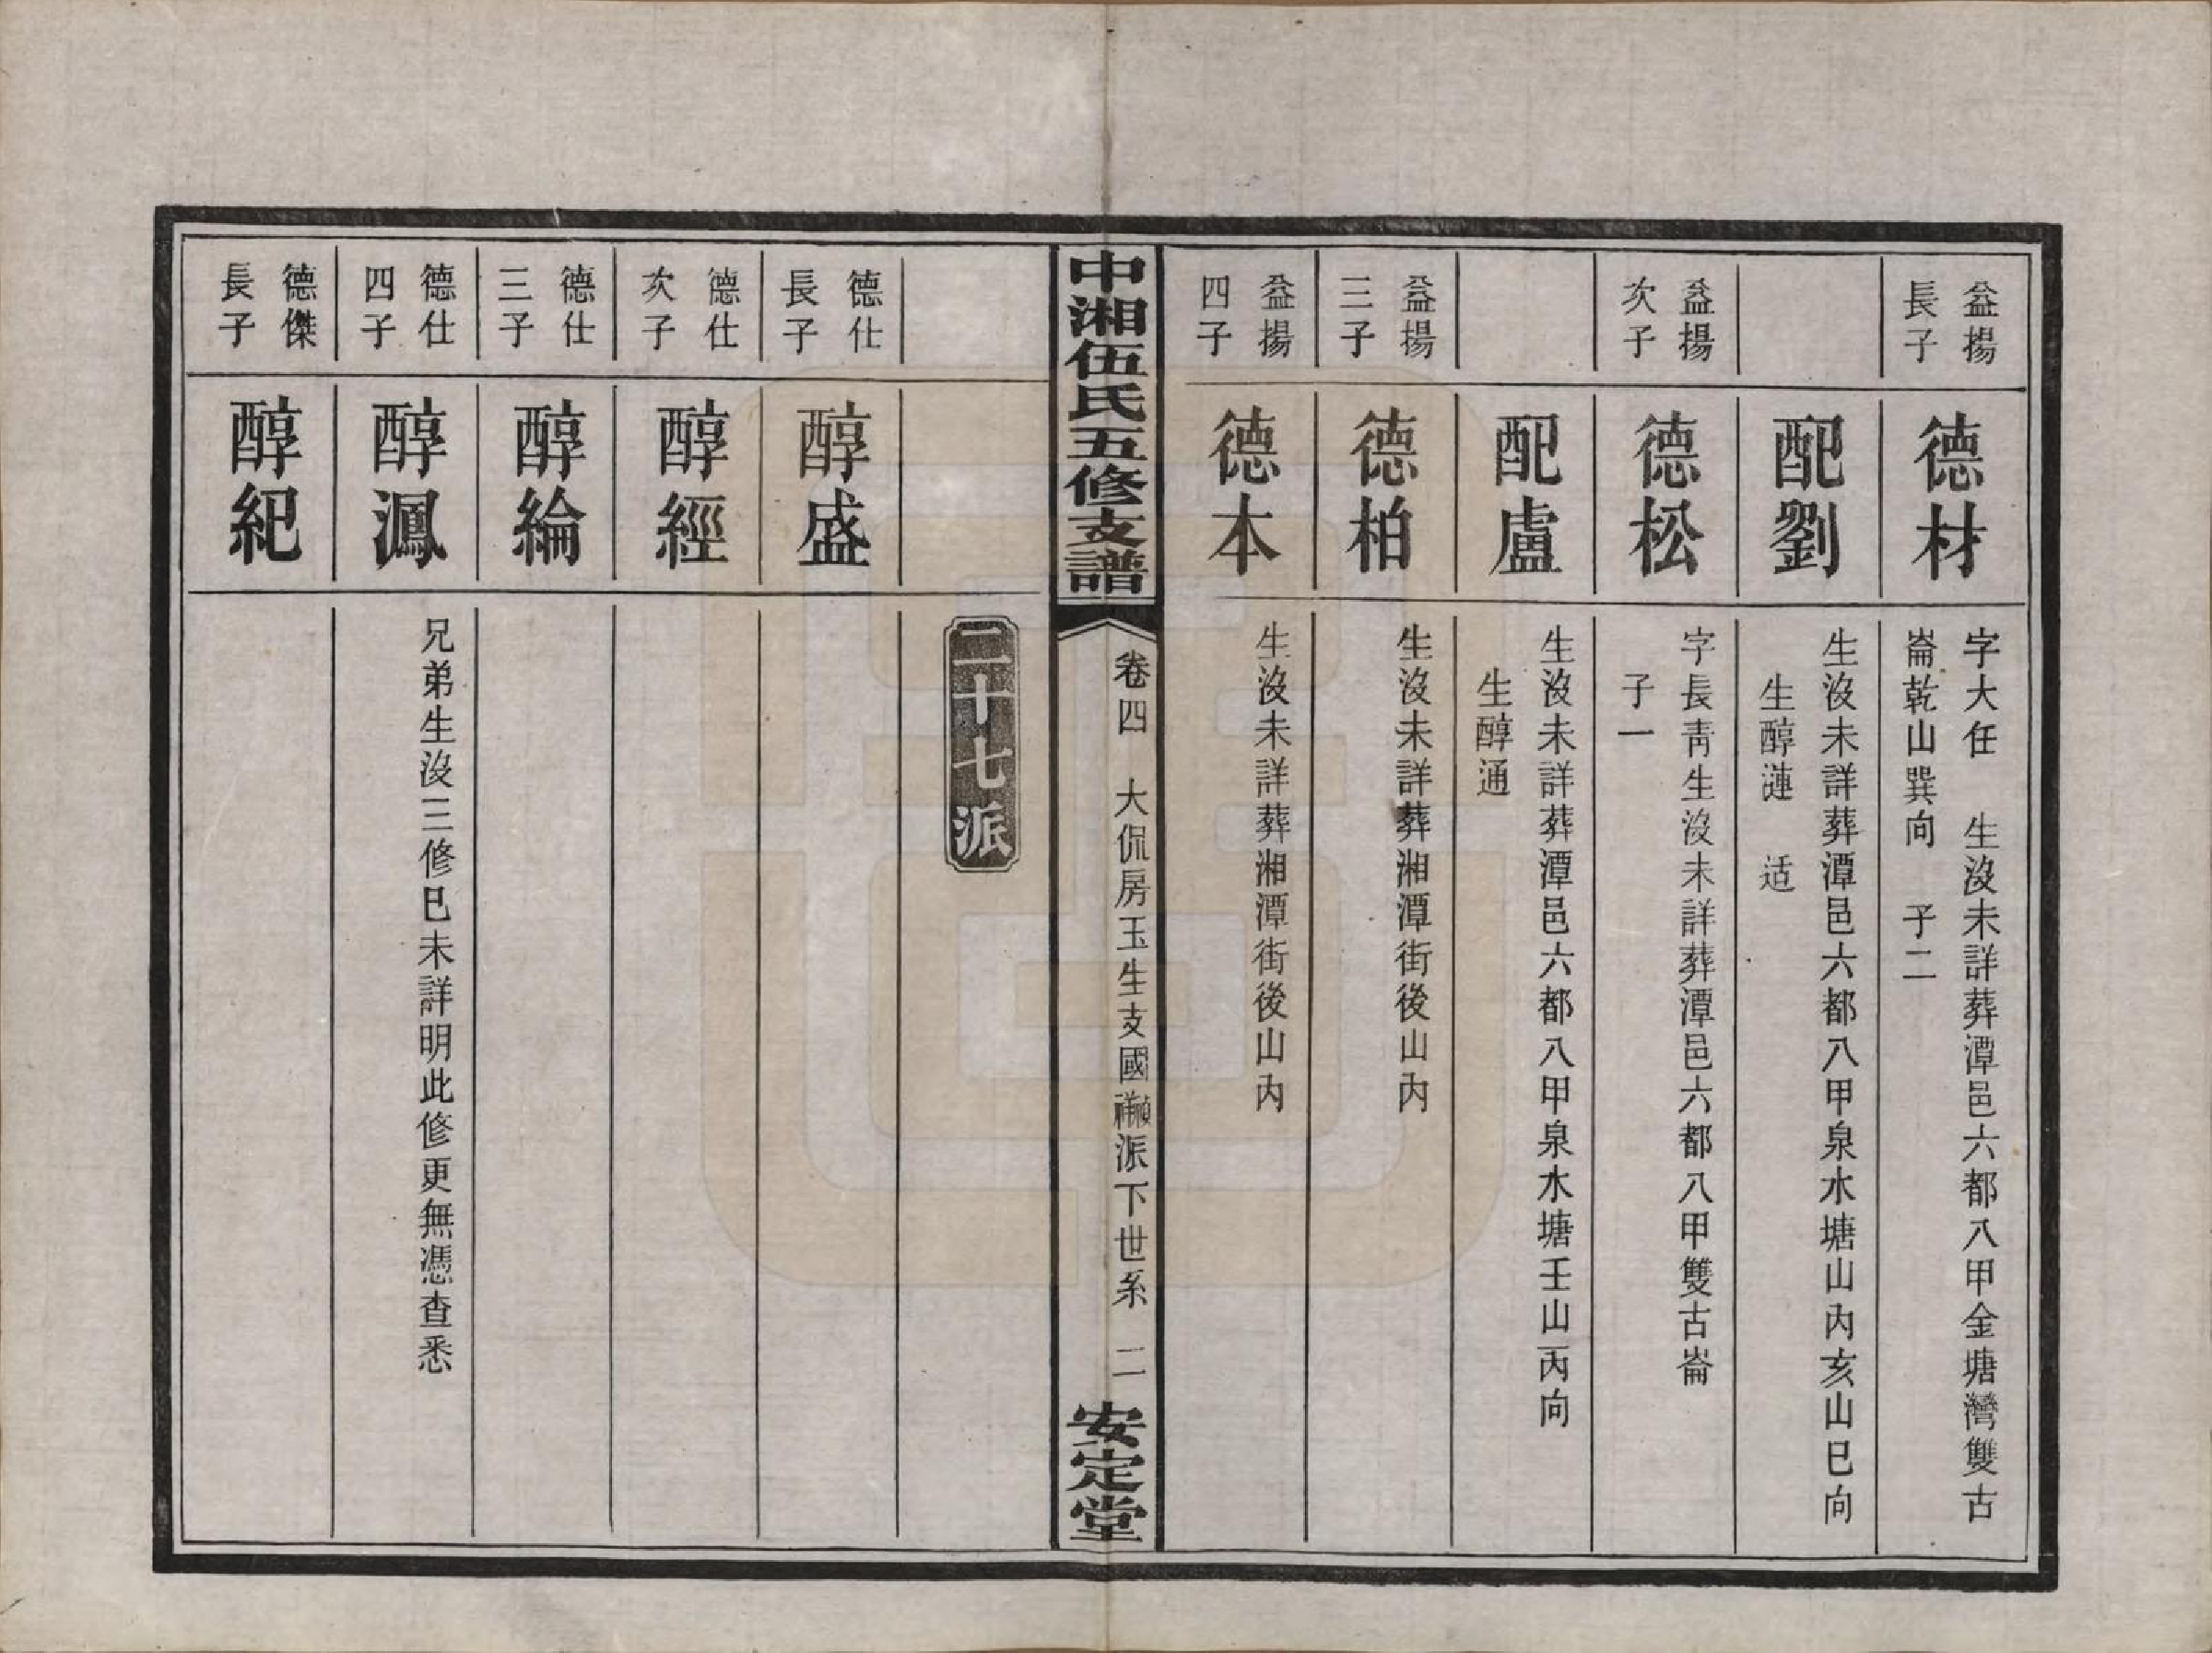 益揚
長子
德材
字大任　生沒未詳葬潭邑六都八甲金塘灣雙古
崙乾山巽向　子二
配劉
生沒未詳葬潭邑六都八甲泉水塘山內亥山巳向
生醇漣　适
益揚
次子
德松
字長青生沒未詳葬潭邑六都八甲雙古崙
子一
配盧
生沒未詳葬潭邑六都八甲泉水塘壬山丙向
生醇通
益揚
三子
德柏
生沒未詳葬湘潭街後山內
益揚
四子
德本
生沒未詳葬湘潭街後山內
中湘伍氏五修支譜
卷四　大侃房玉生支國禎祥派下世系　二
安定堂
二十七派
德仕
長子
醇盛
德仕
次子
醇經
德仕
三子
醇綸
德仕
四子
醇鳳
兄弟生沒三修已未詳明此修更無憑查悉
德傑
長子
醇紀